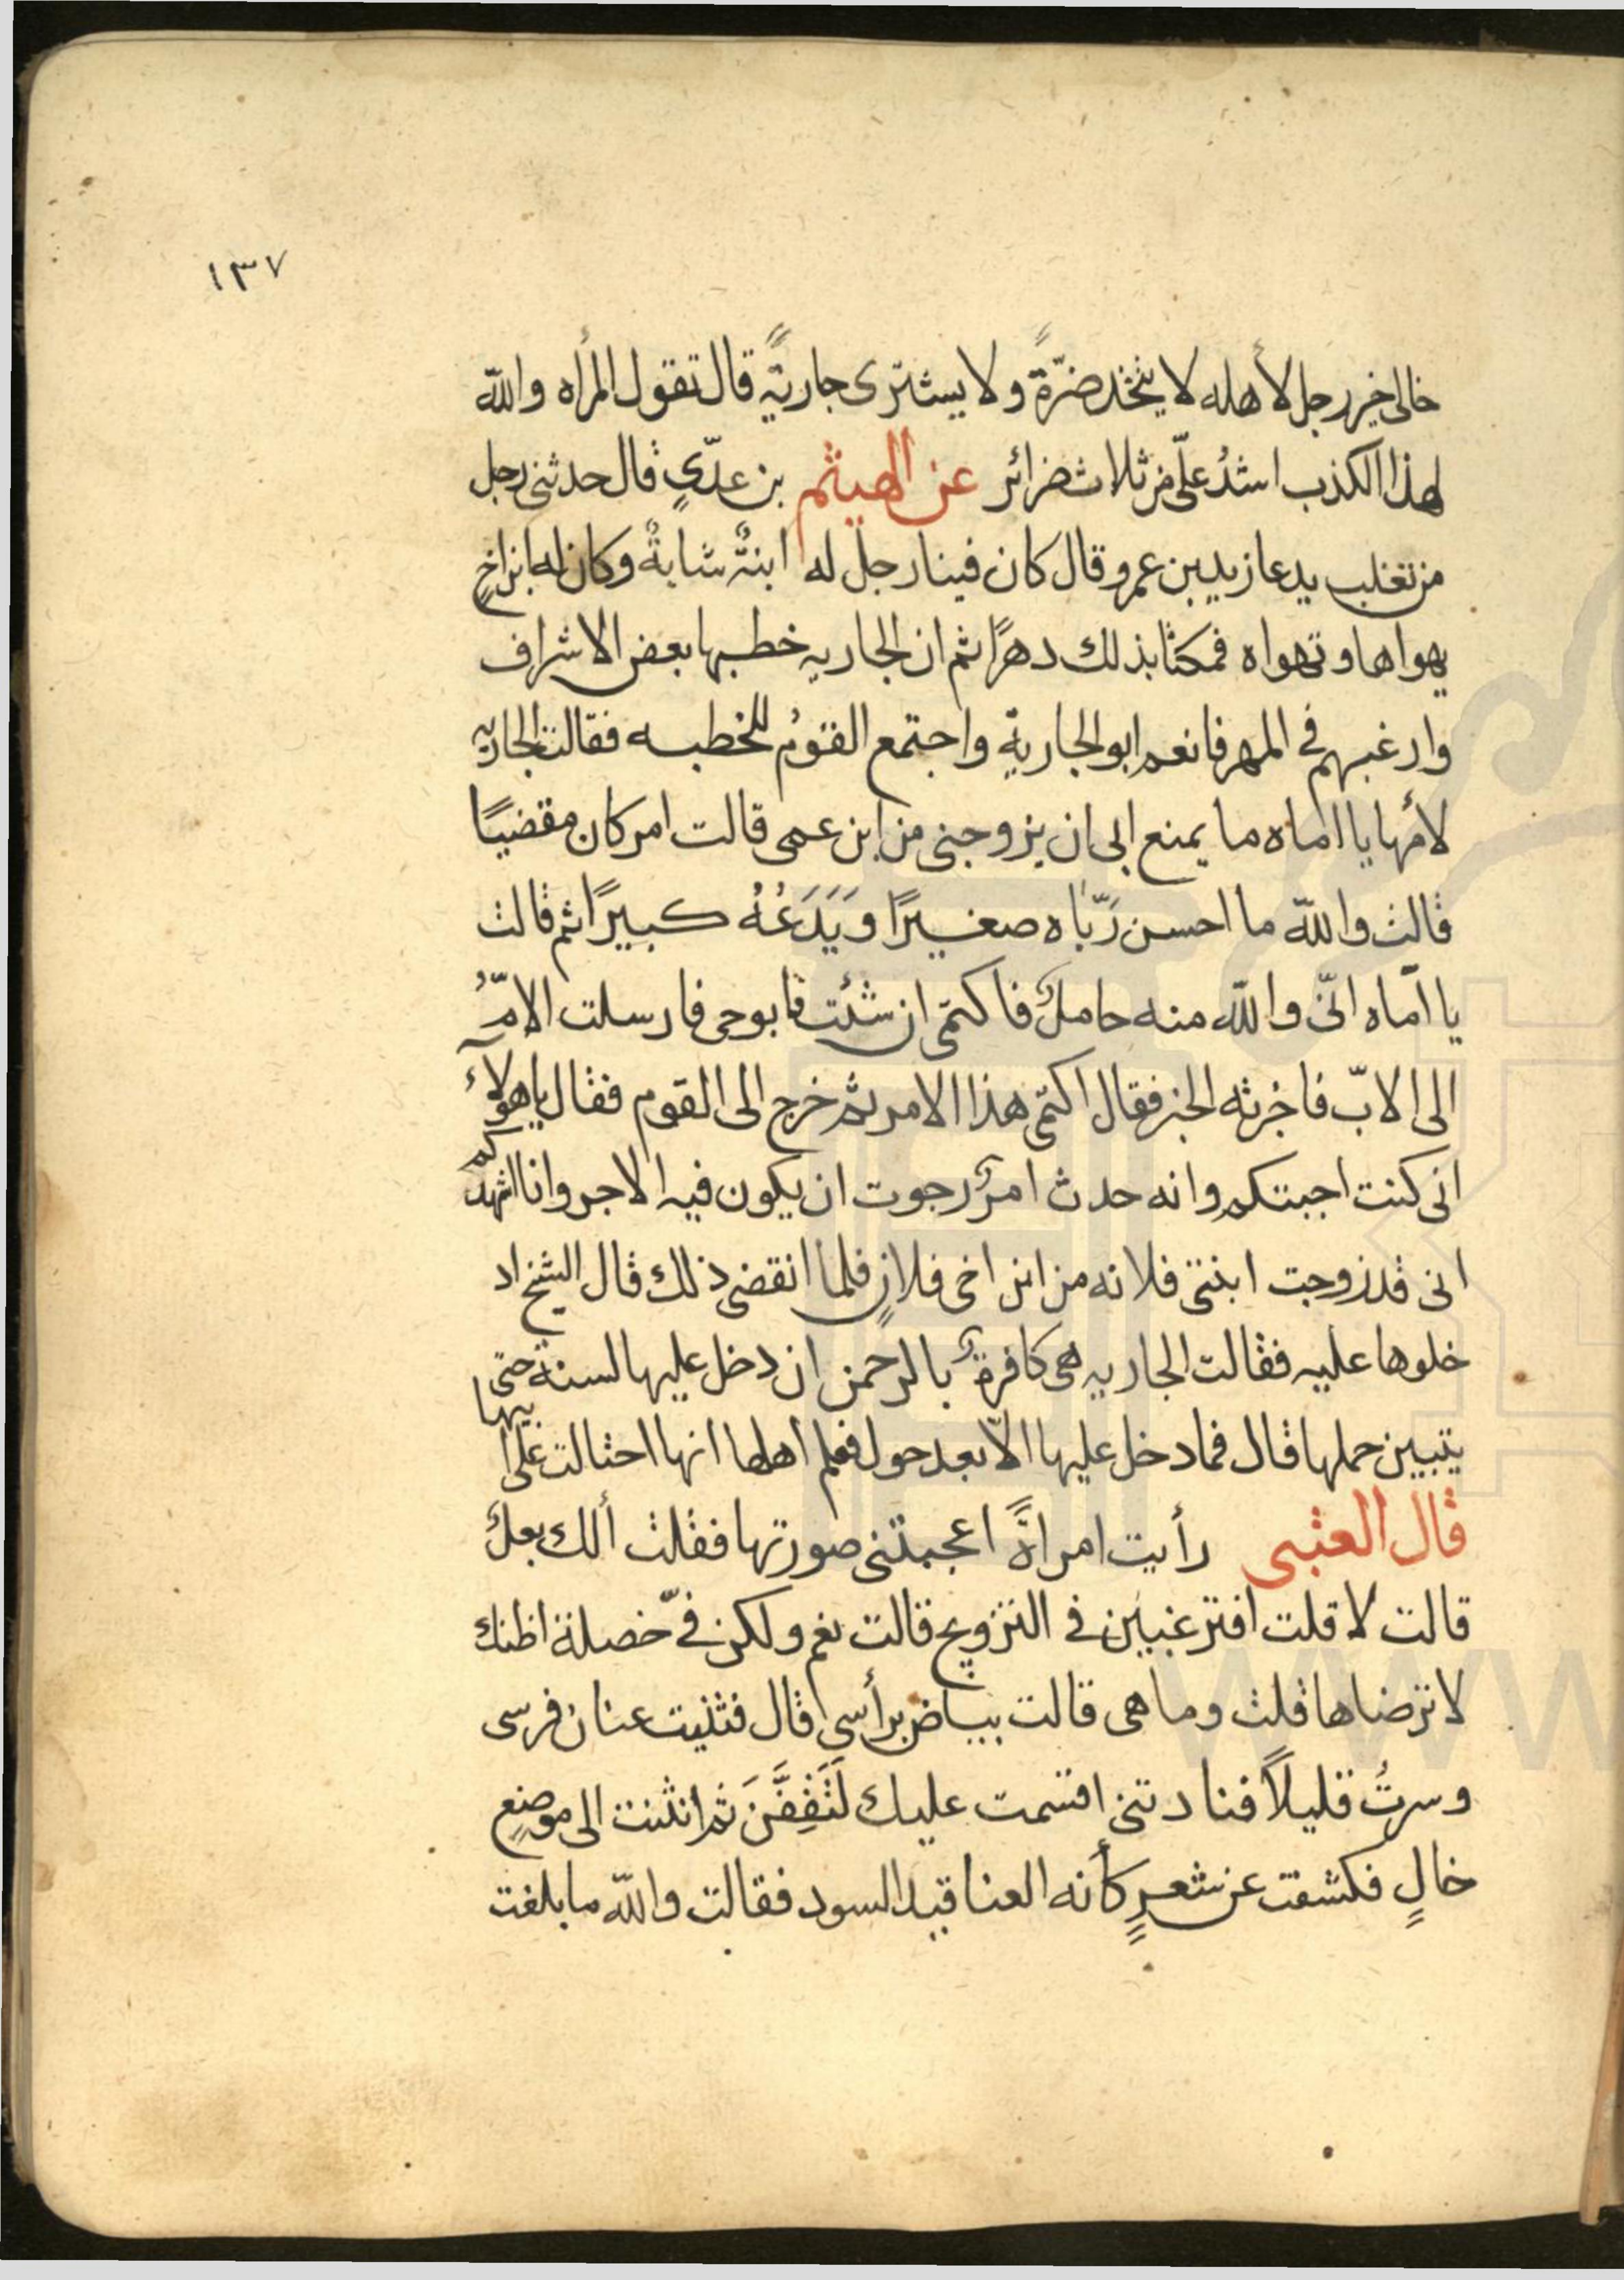 ١٣٧
خالى خير رجل لأهله لا يتخذ ضرّةً ولا يشترى جاريةً قال تقول المرأه والله
لهذا الكذب اشدُ علىّ من ثلاث ضرائر عن الهيثم بن عدّىٍ قال حدثنى رجل
من تغلب يدعا زيد بن عمرو قال كان فينا رجل له ابنةٌ شابةٌ وكان له ابن اخٍ
يهواها وتهواه فمكثا بذلك دهرًا ثم ان الجاريه خطبها بعض الاشراف
وارغبهم فى المهر فانعم ابو الجارية واجتمع القومُ للخطبه فقالت الجاريه
لأمها يا اماه ما يمنع ابى ان يزوجنى من ابن عمى قالت امر كان مقضيًا
قالت والله ما احسن رَبّاه صغيرًا ويَدَعُهُ كبيرًا ثم قالت
يا امّاه انّى والله منه حاملٌ فاكتمى ان شئت فابوحى فارسلت الامُّ
الى الابّ فاخبرته الخبر فقال اكتمى هذا الامر ثم خرج الى القوم فقال ياهولآء
انى كنت اجبتكم وانه حدث امرٌ رجوت ان يكون فيه الاجر وانا اشهدكم
انى قد زوجت ابنتى فلانه من ابن اخى فلانٍ فلما انقضى ذلك قال الشيخ اد
خلوها عليه فقالت الجاريه هى كافرةٌ بالرحمن ان دخل عليها لسنة حتى
يتبيين حملها قال فما دخل عليها الاّ بعد حول فعلم اهلها انها احتالت على ابيها
قال العتبى رأيت امرأةً اعجبتنى صورتها فقلت ألك بعلٌ
قالت لا قلت افترغبين فى التزويج قالت نعم ولكن فىّ خصلة اظنك
لا ترضاها قلت وما هى قالت بياض برأسى قال فثنيت عنان فرسى
وسرتُ قليلاً فنادتنى اقسمت عليك لَتَقِفَنَّ ثم انثنت الى موضعٍ
خالٍ فكشفت عن شعرٍ كأنه العناقيد السود فقالت والله ما بلغت